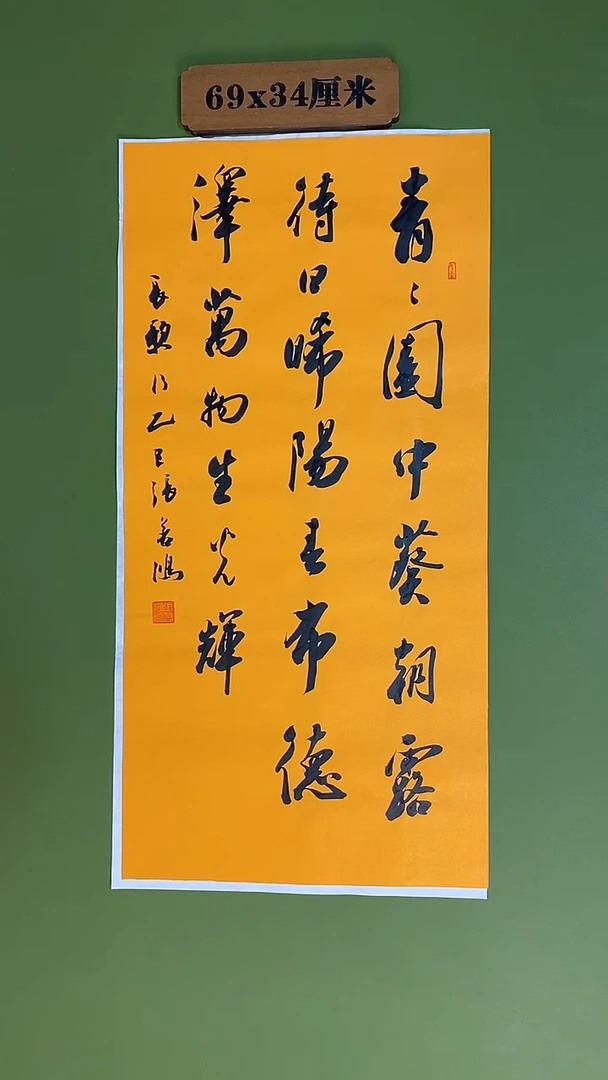 69x34厘米
青〻園中葵朝露
待日晞陽春布德
澤萬物生光輝
長歌行乙巳張善鴻